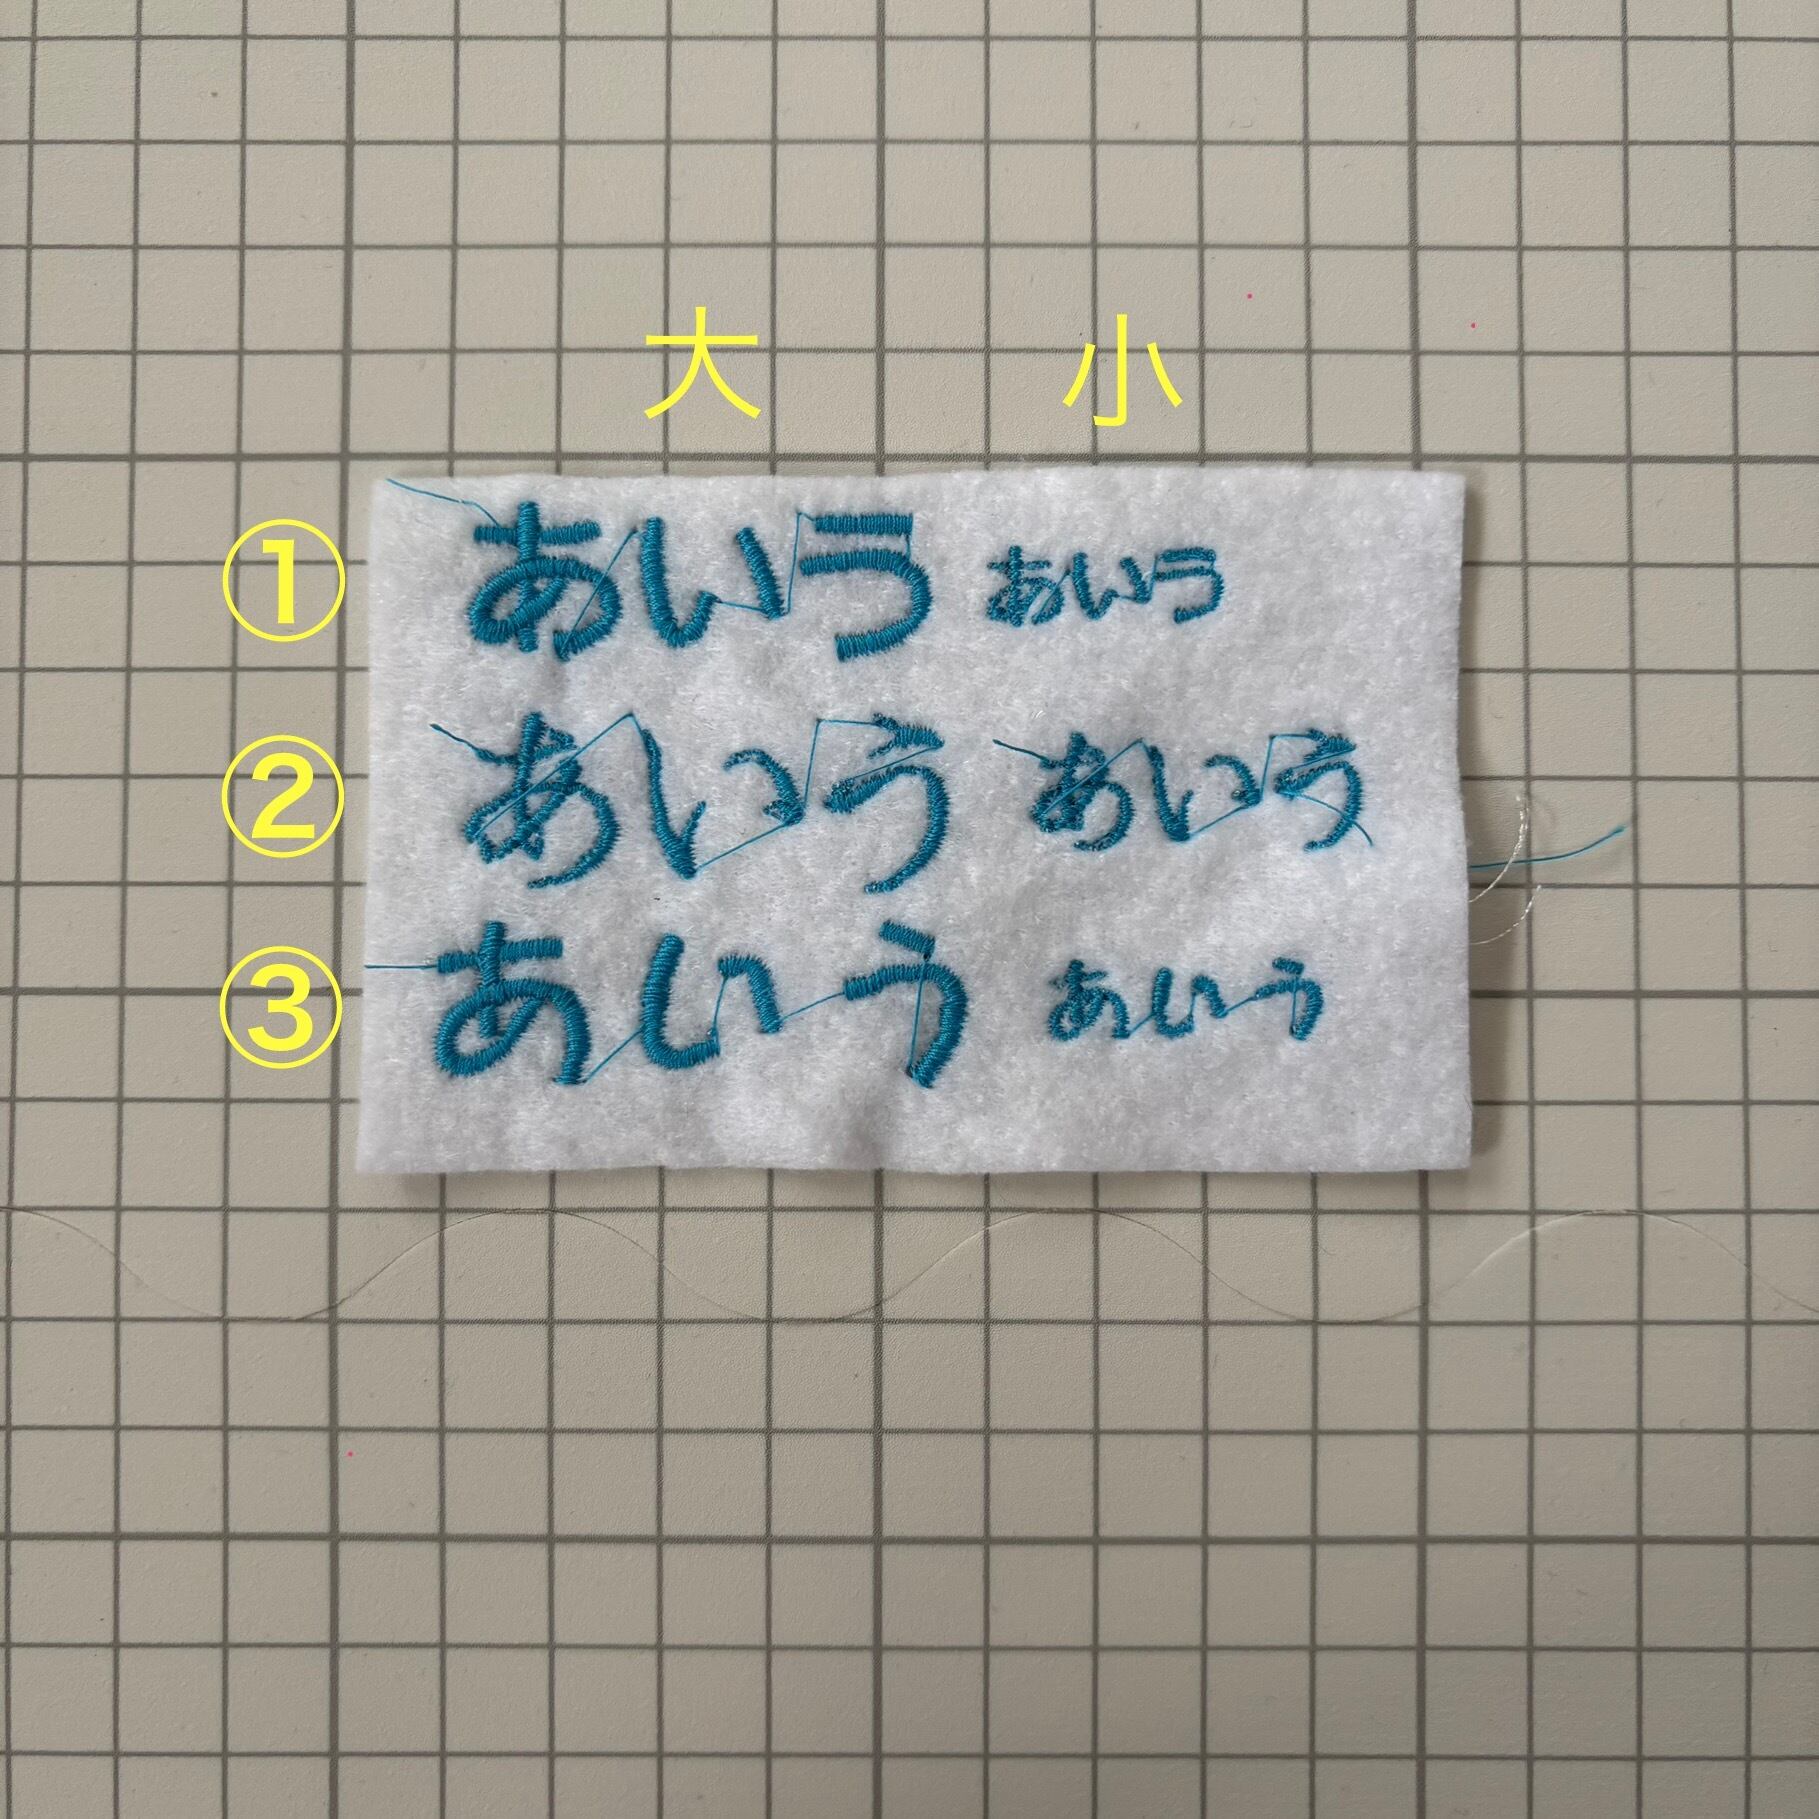 大 小
① あいう あいう
② あいう あいう
③ あいう あいう